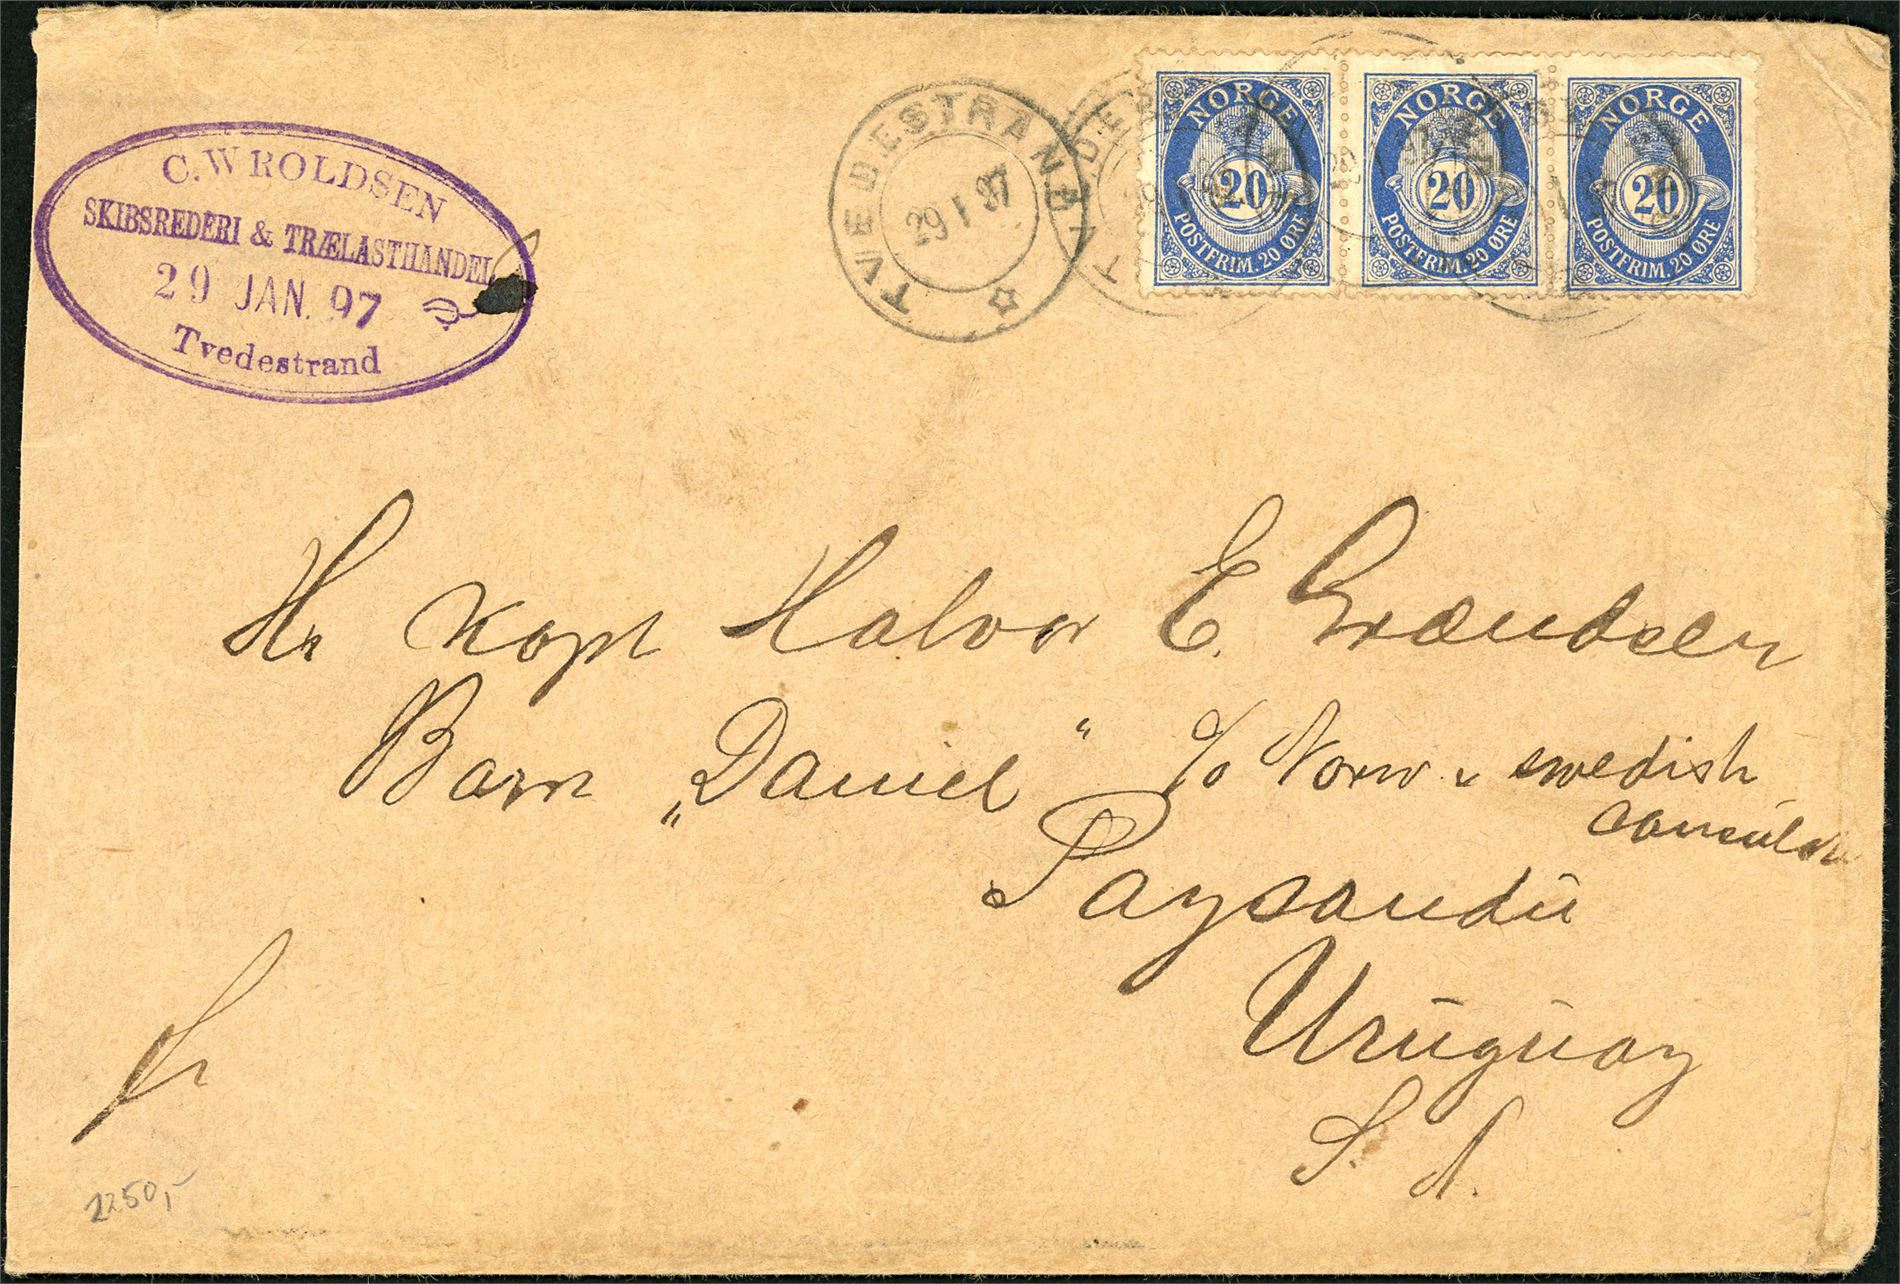 C. WROLDSEN
SKIBSREDERI & TRÆLASTHANDEL
29 JAN. 97
Tvedestrand
TVEDESTRAND
29 I 97
NORGE
20
POSTFRIM. 20 ØRE
NORGE
20
POSTFRIM. 20 ØRE
NORGE
20
POSTFRIM. 20 ØRE
Hr Kapt Halvor E. Grændsen
Bark „Daniel“ c/o Norw & swedish
consulate
Paysandú
Uruguay
S. A.
2250,-